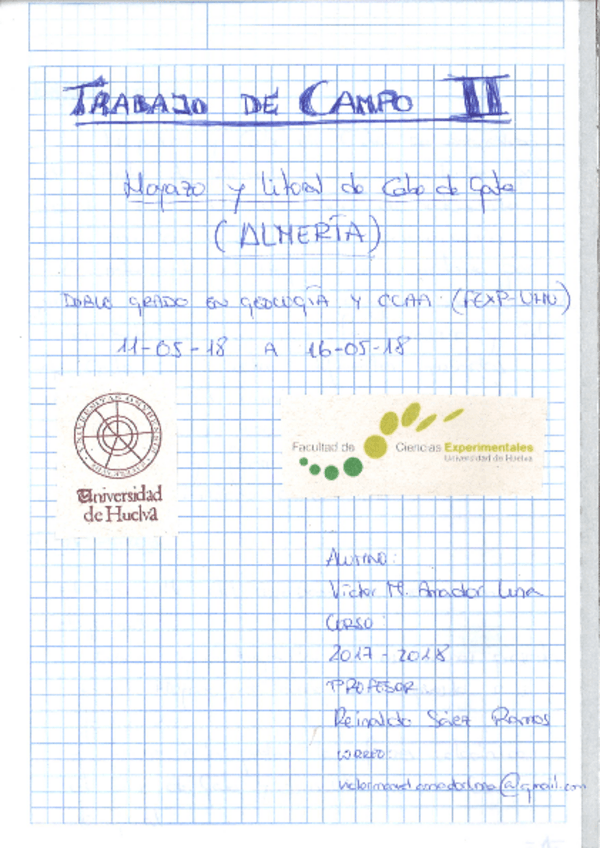 TRABAJO DE CAMPO II
Hoyazo y litoral de Cabo de Gata
(ALMERÍA)
DOBLE GRADO EN GEOLOGÍA Y CCAA (FEXP-UHU)
11-05-18 A 16-05-18
Universidad
de Huelva
Facultad de Ciencias Experimentales
Universidad de Huelva
ALUMNO:
Víctor M. Amador Luna
CURSO:
2017-2018
PROFESOR
Reinaldo Sáez Ramos
CORREO:
victormanuelamadorluna@gmail.com